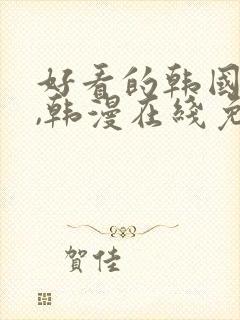 好看的韩国
,韩漫在线免
賀佳